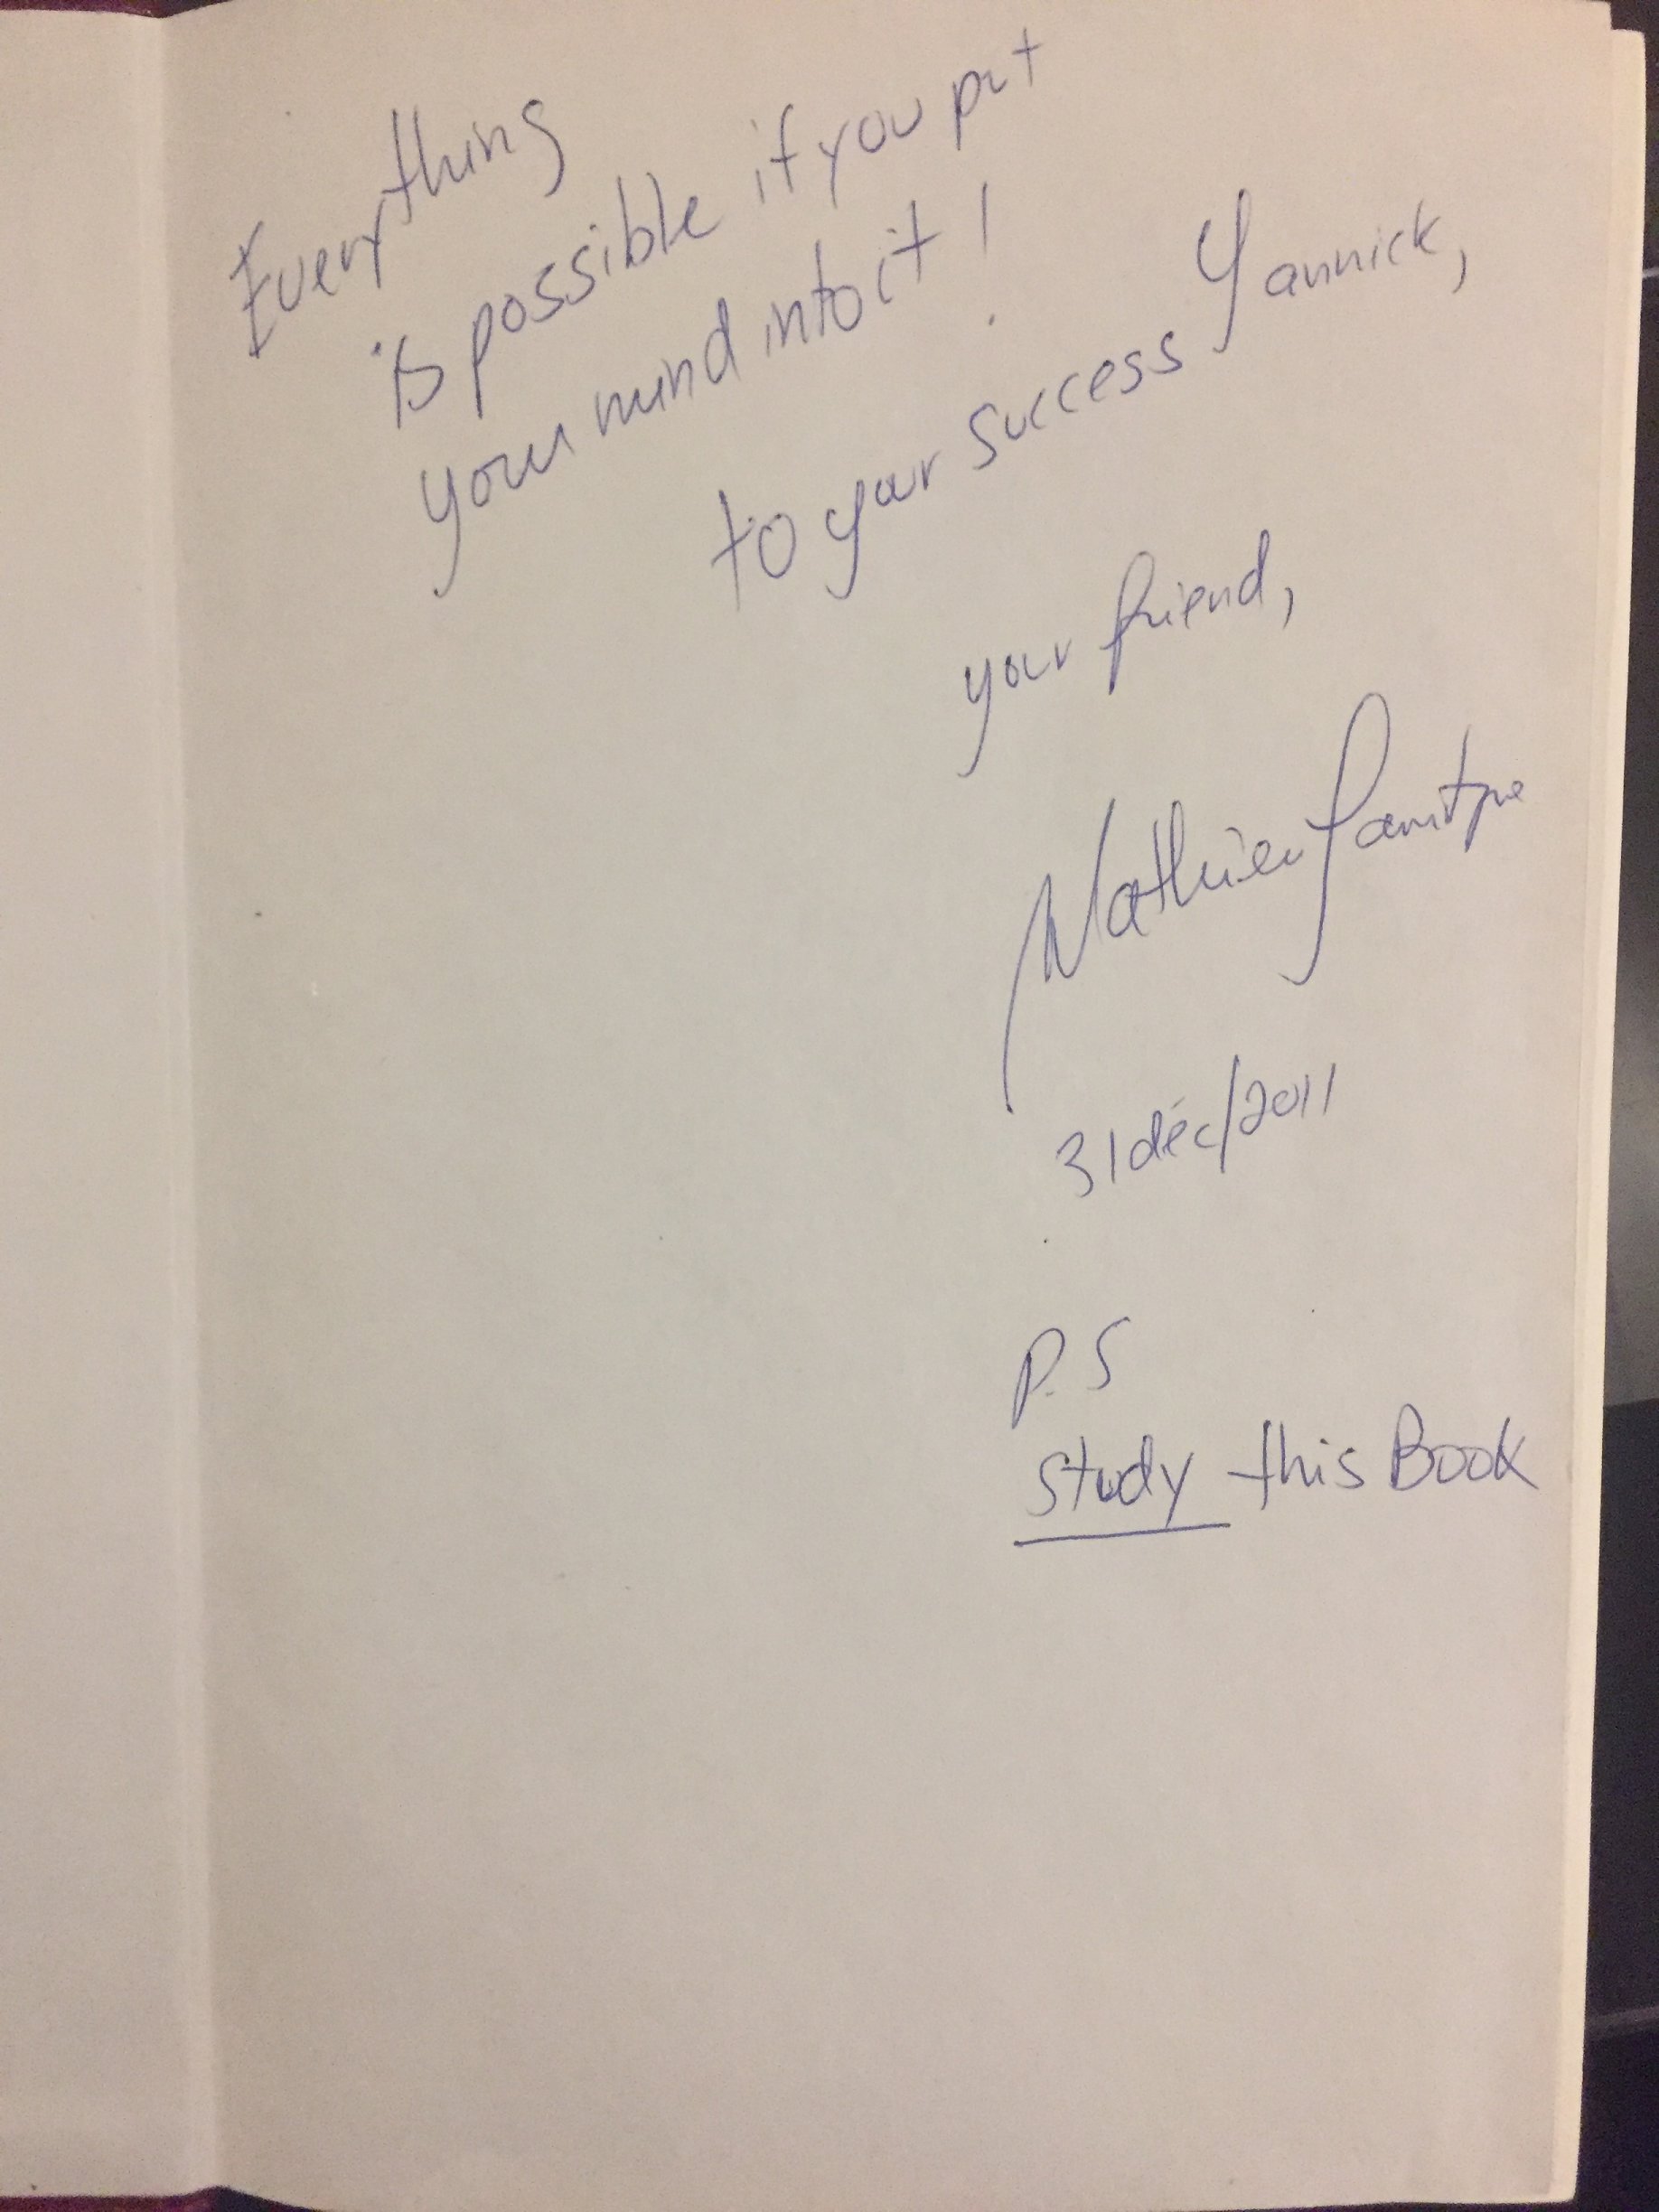 Everything
is possible if you put
your mind into it !
to your success Yannick,
your friend,
Mathieu
31 déc/2011
P.S
study this Book